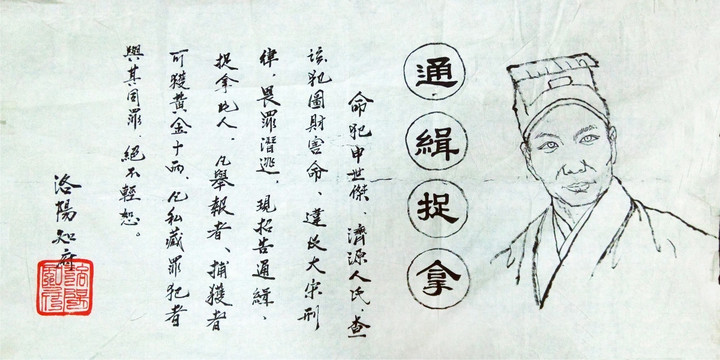 通緝捉拿
命犯申世傑、濟源人氏.查
該犯圖財害命、違反大宋刑
律,畏罪潛逃,現招告通緝、
捉拿此人,凡舉報者、捕獲者
可獲黃金十両,凡私藏罪犯者
與其同罪.絕不輕恕。
洛陽知府